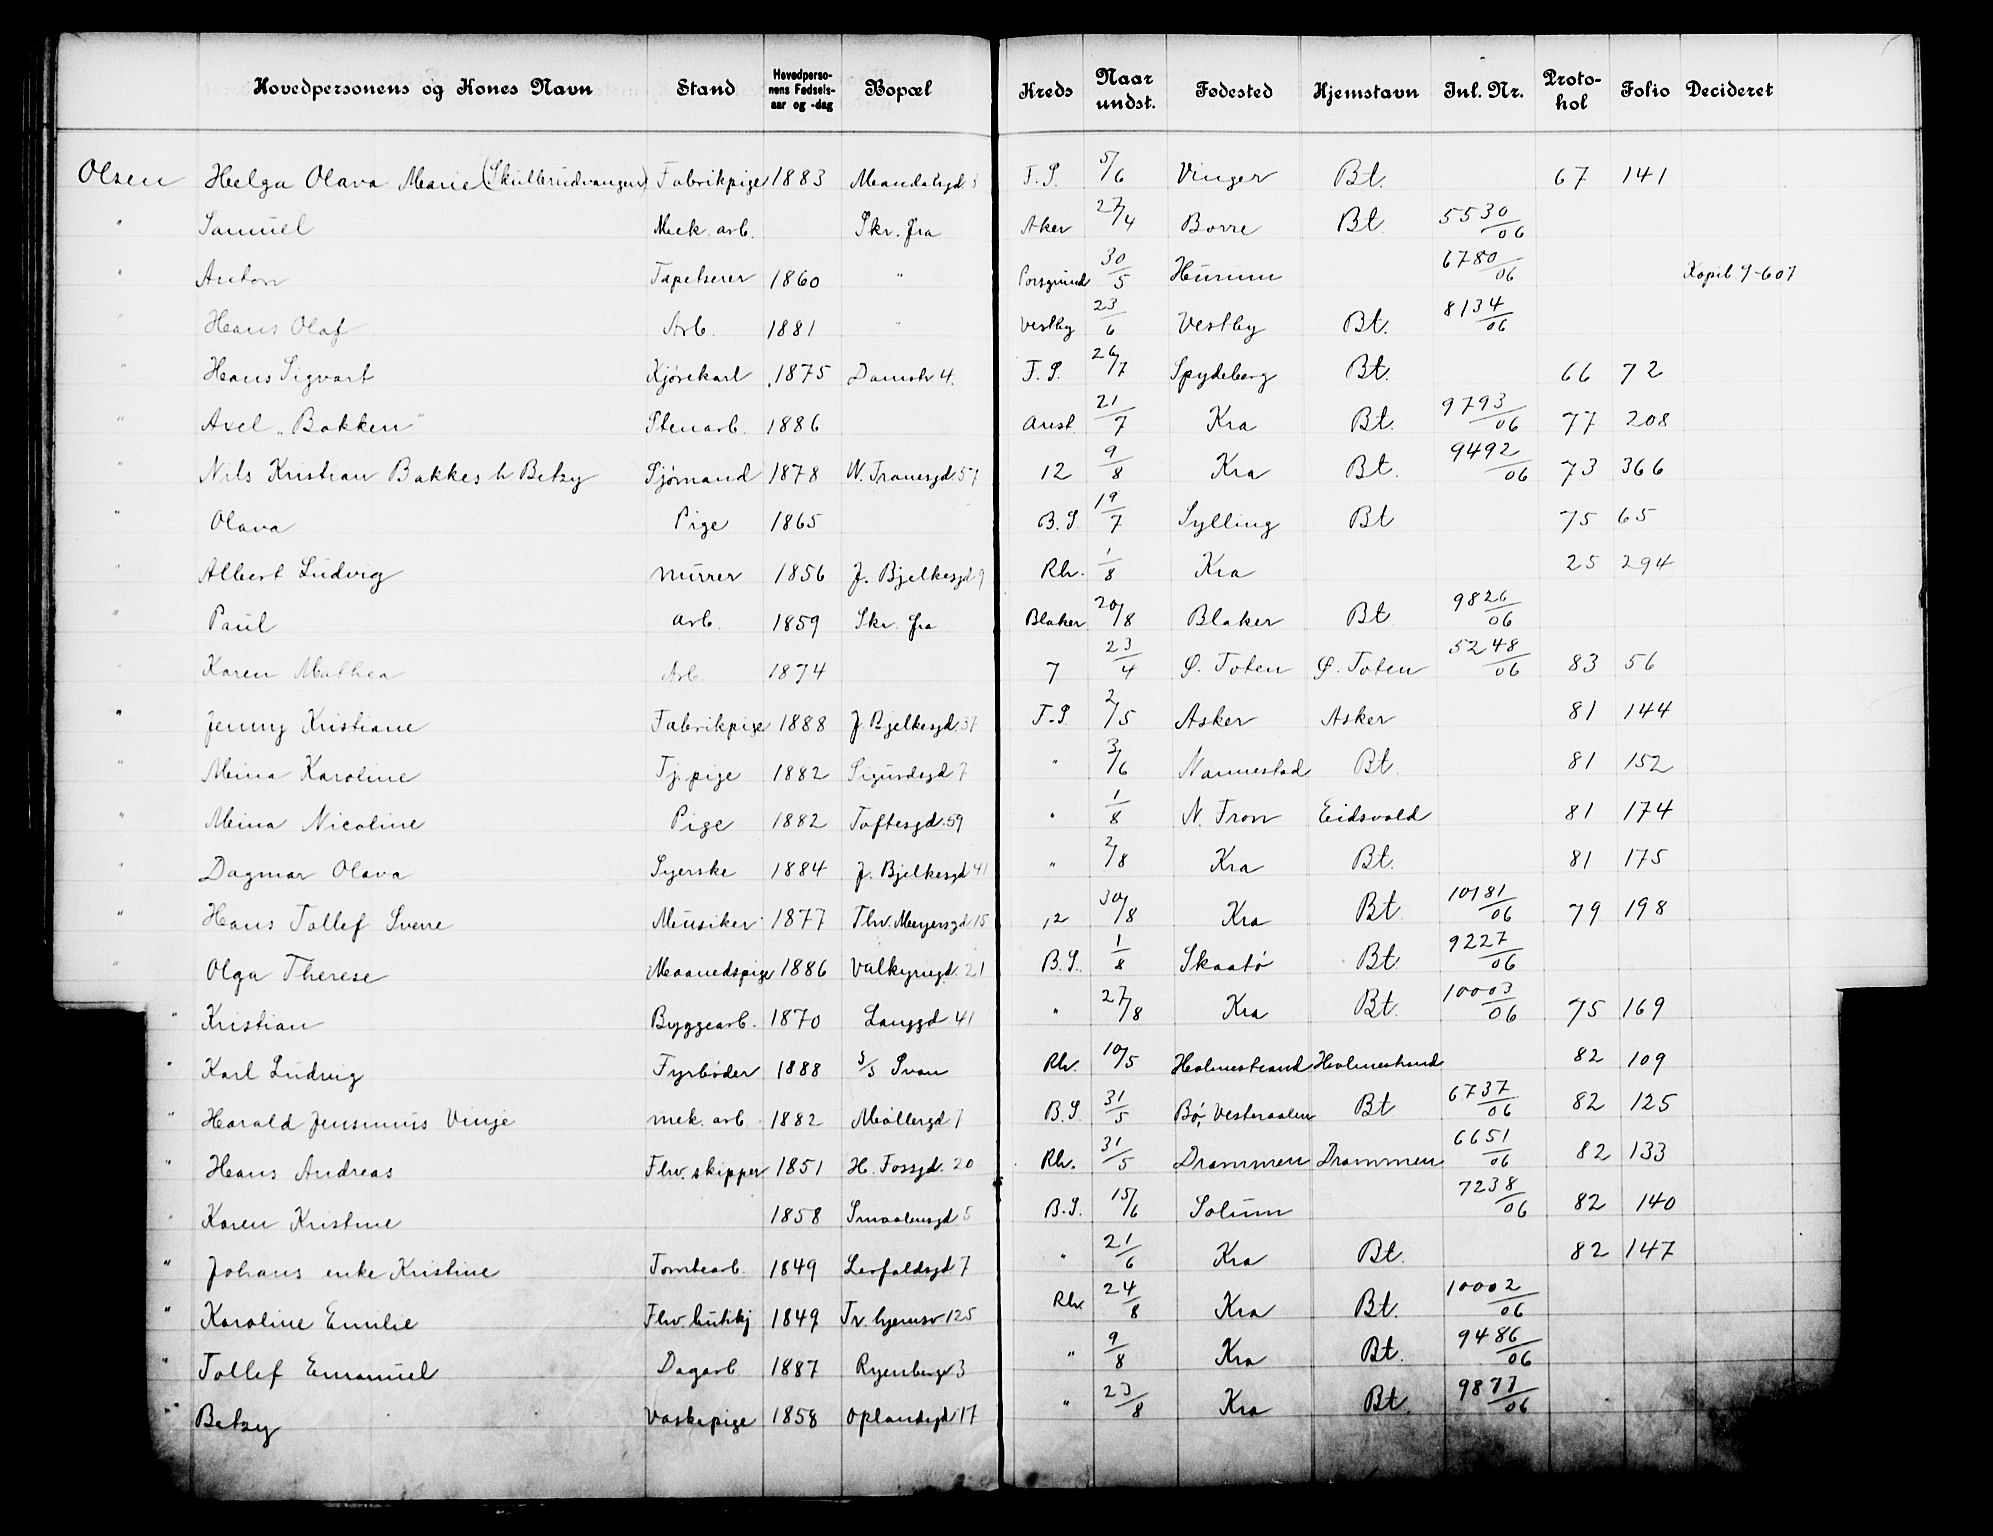 Hovedpersonens og Kones Navn Stand Hovedpersonens Fødselsaar og -dag Bopæl Kreds Naar undst. Fødested Hjemstavn Jnl. Nr. Protokol Folio Decideret
Olsen Helga Olava Marie (Skullerudvangen) Fabrikpige 1883 Mandalsgd. 3 F.S. 5/6 Vinger Bt. 67 141
" Samuel Mek. arb. Skr. fra Aker 27/4 Borre Bt. 5530/06
" Anton Tapetserer 1860 " Porsgrund 30/5 Hurum 6780/06 Kopil 9-607
" Hans Olaf Arb. 1881 " Vestby 23/6 Vestby Bt. 8134/06
" Hans Sigvart Kjørekarl 1875 Damstr 4. F.S. 26/7 Spydeberg Bt. 66 72
" Axel "Bakken" Stenarb. 1886 Anst. 21/7 Kra Bt. 9793/06 77 208
" Nils Kristian Bakkes h Betzy Sjømand 1878 W. Tranesgd. 57 12 9/8 Kra Bt. 9492/06 73 366
" Olava Pige 1865 B.S. 19/7 Sylling Bt 75 65
" Albert Ludvig murer 1856 J. Bjelkesgd 9 Rh. 1/8 Kra 25 294
" Paul arb. 1859 Skr. fra Blaker 20/8 Blaker Bt 9826/06
" Karen Mathea Arb. 1874 7 23/4 Ø. Toten Ø. Toten 5248/06 83 56
" Jenny Kristiane Fabrikpige 1888 J. Bjelkesgd. F.S. 2/5 Asker Asker 81 144
" Mina Karoline Tj. pige 1882 Sigurdsgd 7 " 3/6 Nannestad Bt. 81 152
" Mina Nicoline Pige 1882 Toftesgd. 59 " 1/8 N. Fron Eidsvold 81 174
" Dagmar Olava Syerske 1884 J. Bjelkesgd 41 " 2/8 Kra Bt. 81 175
" Hans Tollef Sverre Musiker 1877 Thv. Meyersgd. 15 12 30/8 Kra Bt. 10181/06 79 198
" Olga Therese Maanedspige 1886 Valkyriegd. 21 B.S. 1/8 Skaatø Bt. 9227/06
" Kristian Byggearb. 1870 Langgd 41 " 27/8 Kra Bt. 10003/06 75 169
" Karl Ludvig Fyrbøder 1888 S/S Svan Rh. 10/5 Holmestrand Holmestrand 82 109
" Harald Jensinius Vinje mek. arb 1882 Møllergd 7 B.S. 31/5 Bø, Vesteraalen Bt 6737/06 82 125
" Hans Andreas Fhv. skipper 1851 H. Fossgd. 20 Rh. 31/5 Drammen Drammen 6651/06 82 133
" Karen Kristine 1858 Smaalensgd 5 B.S. 15/6 Solum 7238/06 82 140
" Johans enke Kristine Tomtearb. 1849 Lerfaldsgd 7 " 21/6 Kra Bt. 82 147
" Karoline Emilie Fhv. butikj 1849 Tr. hjemsv 125 Rh. 24/8 Kra Bt. 10002/06
" Tollef Emanuel Dagarb 1887 Ryenbergv 3 " 9/8 Kra Bt. 9486/06
" Betzy Vaskepige 1858 Oplandsgd 17 " 23/8 Kra Bt. 9873/06